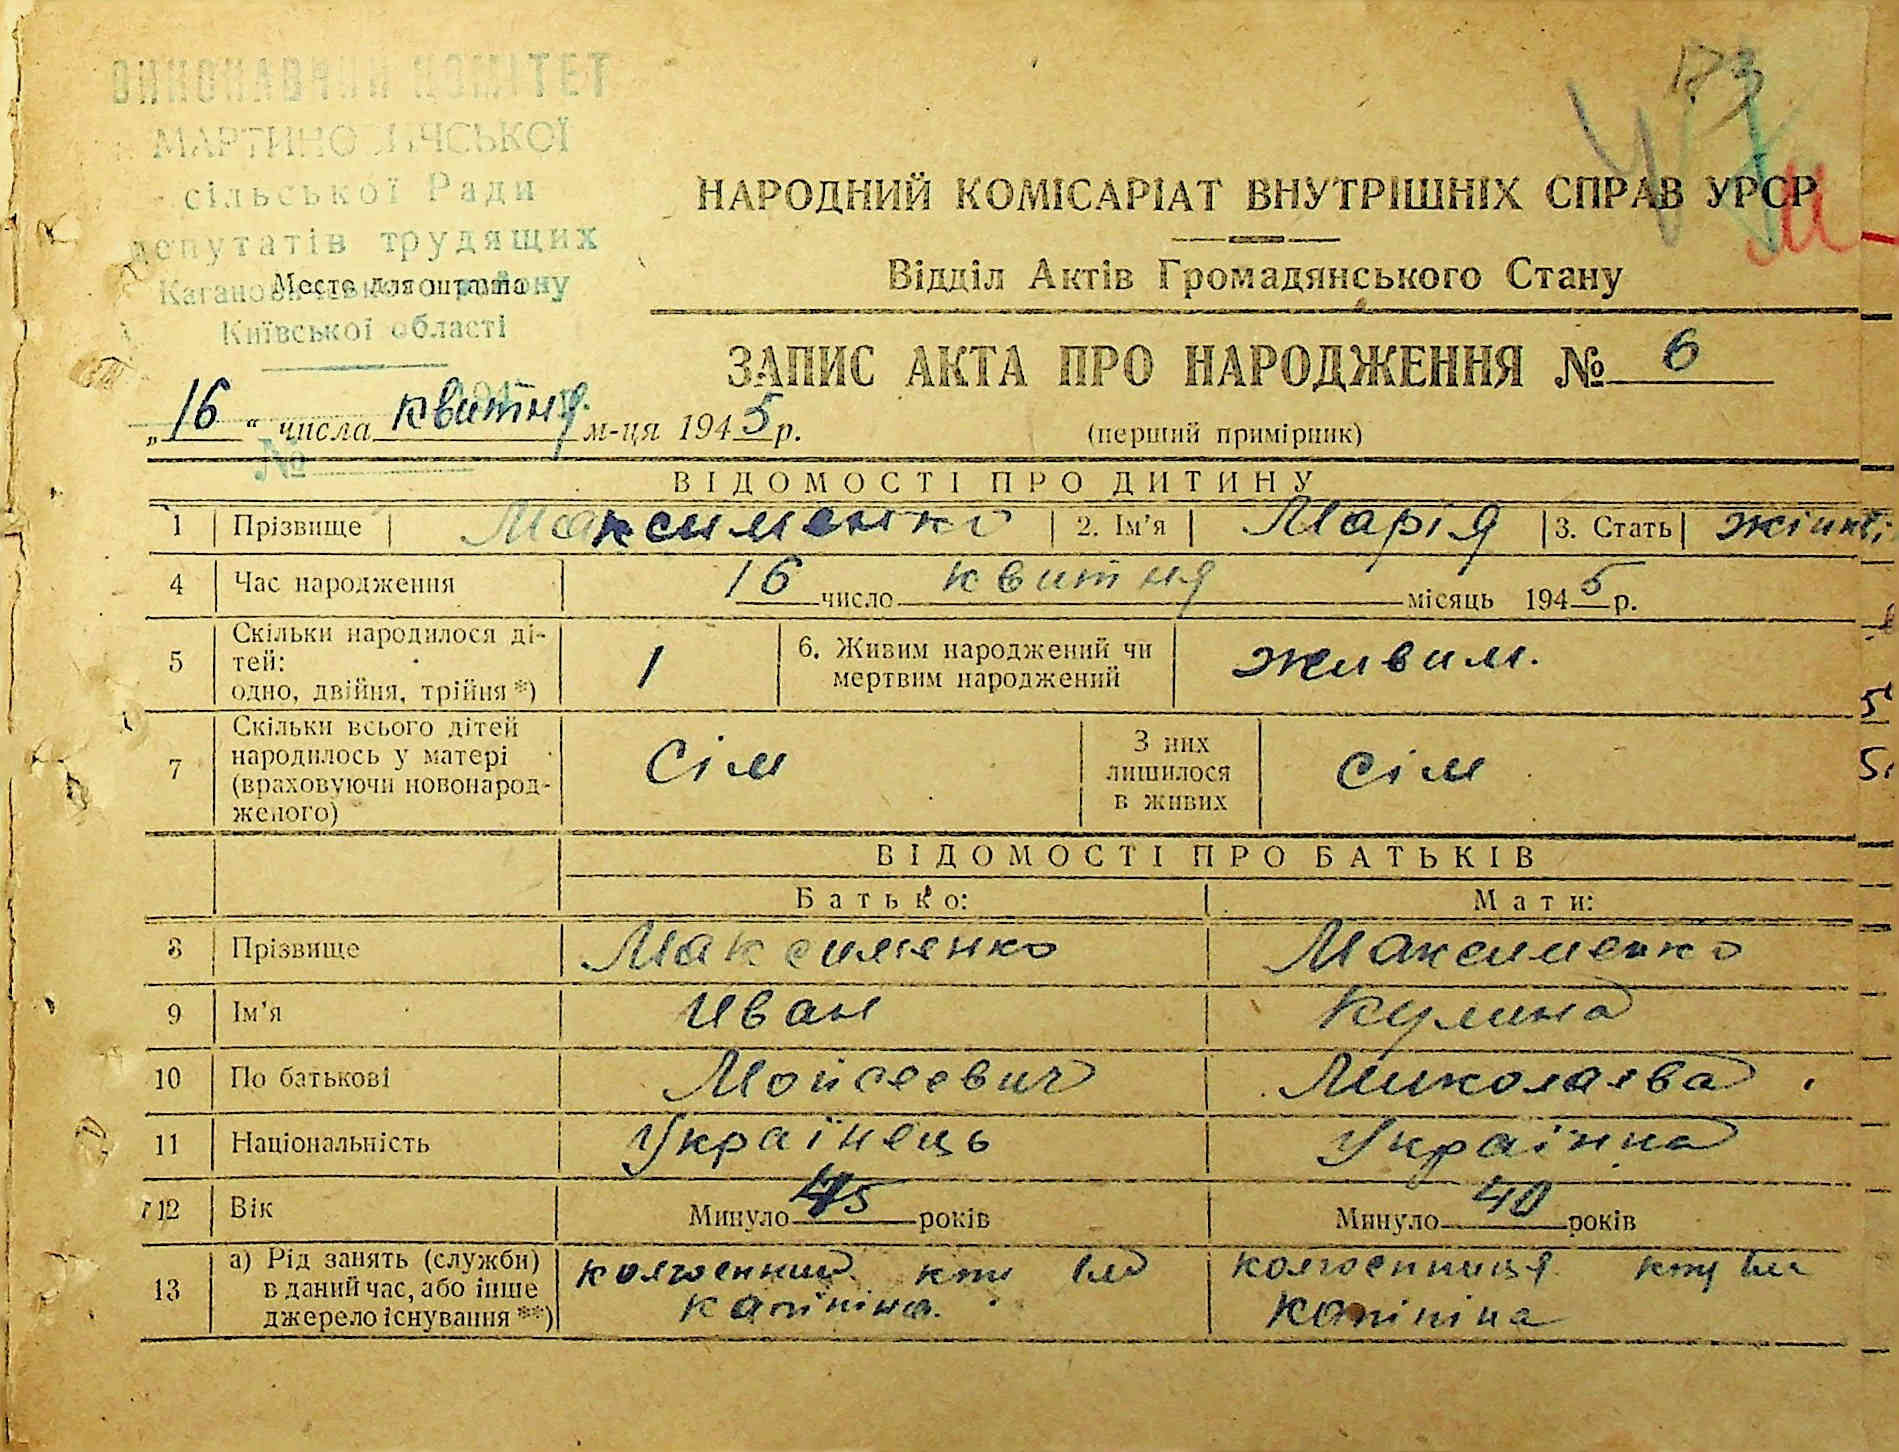 ВИКОНАВЧИЙ КОМІТЕТ
МАРТИНОВИЧСЬКОЇ
сільської Ради
депутатів трудящих
Кагановицького району
Место для штампа
Київської області
№
173
НАРОДНИЙ КОМІСАРІАТ ВНУТРІШНІХ СПРАВ УРСР
Відділ Актів Громадянського Стану
ЗАПИС АКТА ПРО НАРОДЖЕННЯ № 6
„16“ числа квитня м-ця 1945 р.
(перший примірник)
ВІДОМОСТІ ПРО ДИТИНУ
1 Прізвище Максименко 2. Ім'я Марія 3. Стать
4 Час народження 16 число квитня місяць 1945 р.
5 Скільки народилося ді-
тей:
одно, двійня, трійня *) 1
6. Живим народжений чи
мертвим народжений живим.
7 Скільки всього дітей
народилось у матері
(враховуючи новонарод-
женого) сім
З них
лишилося
в живих сім
ВІДОМОСТІ ПРО БАТЬКІВ
Батько: Мати:
8 Прізвище Максименко Максименко
9 Ім'я Иван Кулина
10 По батькові Мойсеевич Миколаева
11 Національність Українець Українка
12 Вік Минуло 45 років Минуло 40 років
13 а) Рід занять (служби)
в даний час, або інше
джерело існування **)
колгоспник Калініна.
колгоспниця Калініна